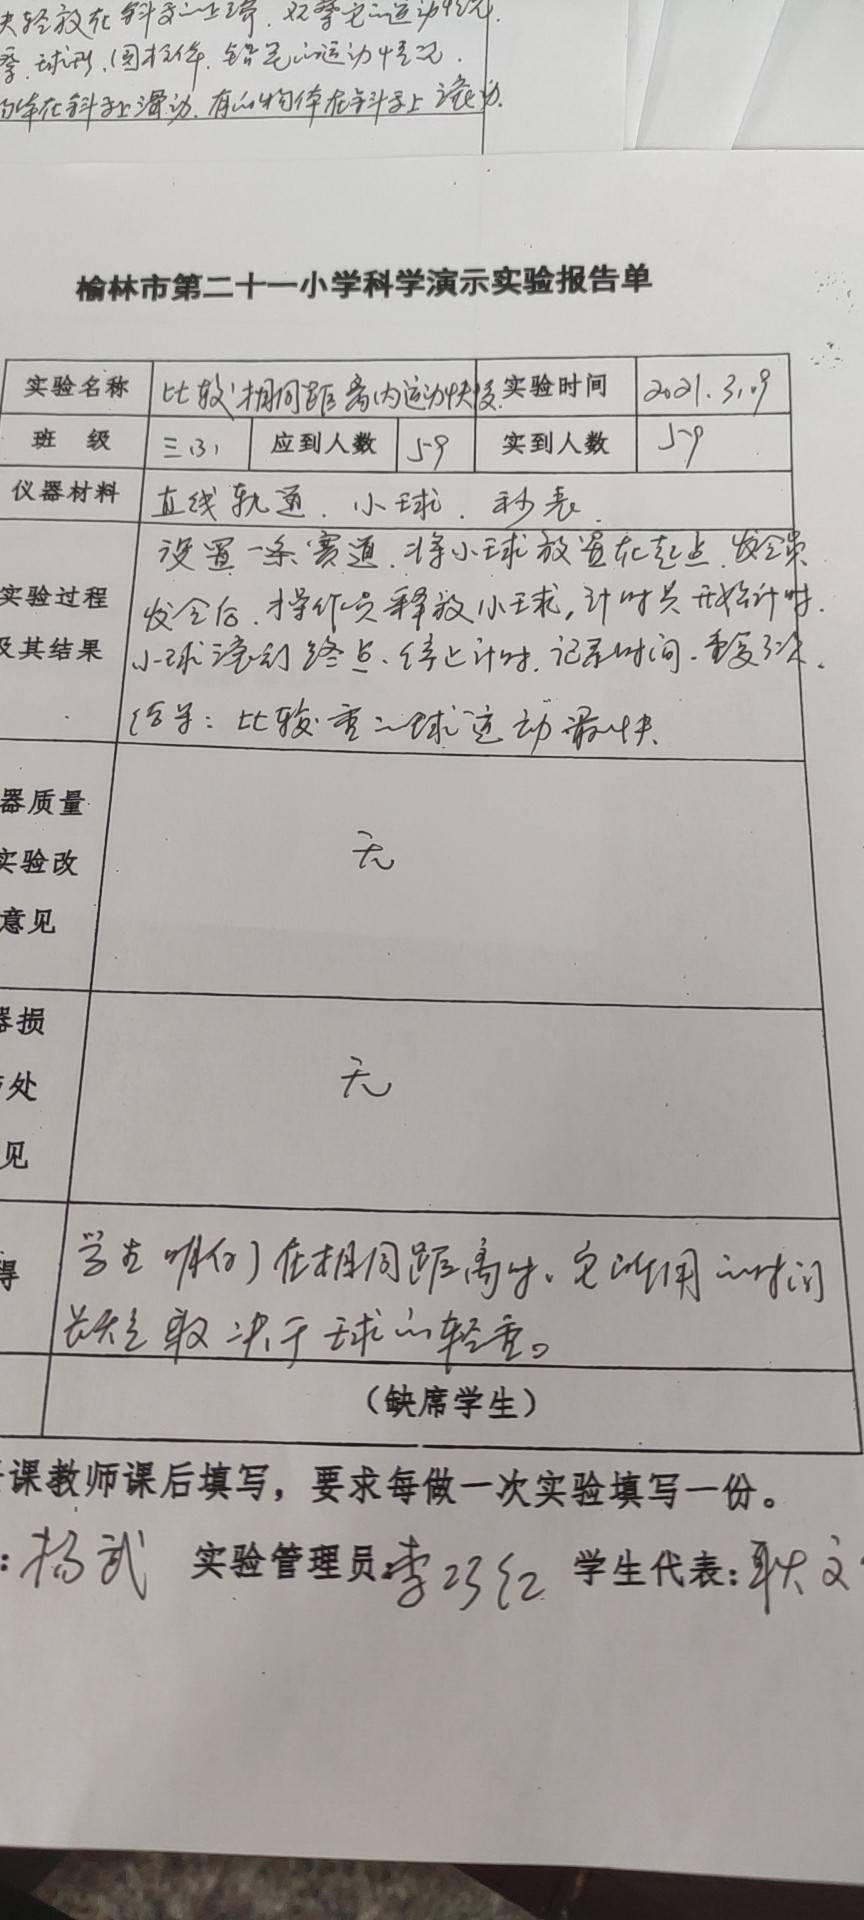 夹轻放在斜面的上端.观察它的运动情况.
球形、圆柱体、铅笔的运动情况.
物体在斜面上滑动.有的物体在斜面上滚动.
榆林市第二十一小学科学演示实验报告单
实验名称 比较相同距离内运动快慢 实验时间 2021.3.9
班 级 三(3) 应到人数 59 实到人数 59
仪器材料 直线轨道.小球.秒表.
设置一条赛道.将小球放置在起点.发令员
实验过程 发令后.操作员释放小球,计时员开始计时.
及其结果 小球滚到终点.停止计时.记录时间.重复3次.
结果:比较重的球运动最快.
器质量
实验改 无
意见
器损
处 无
见
得 学生明白了在相同距离时.它所用的时间
长短取决于球的轻重。
(缺席学生)
课教师课后填写,要求每做一次实验填写一份。
:杨武 实验管理员:李巧红 学生代表:耿文